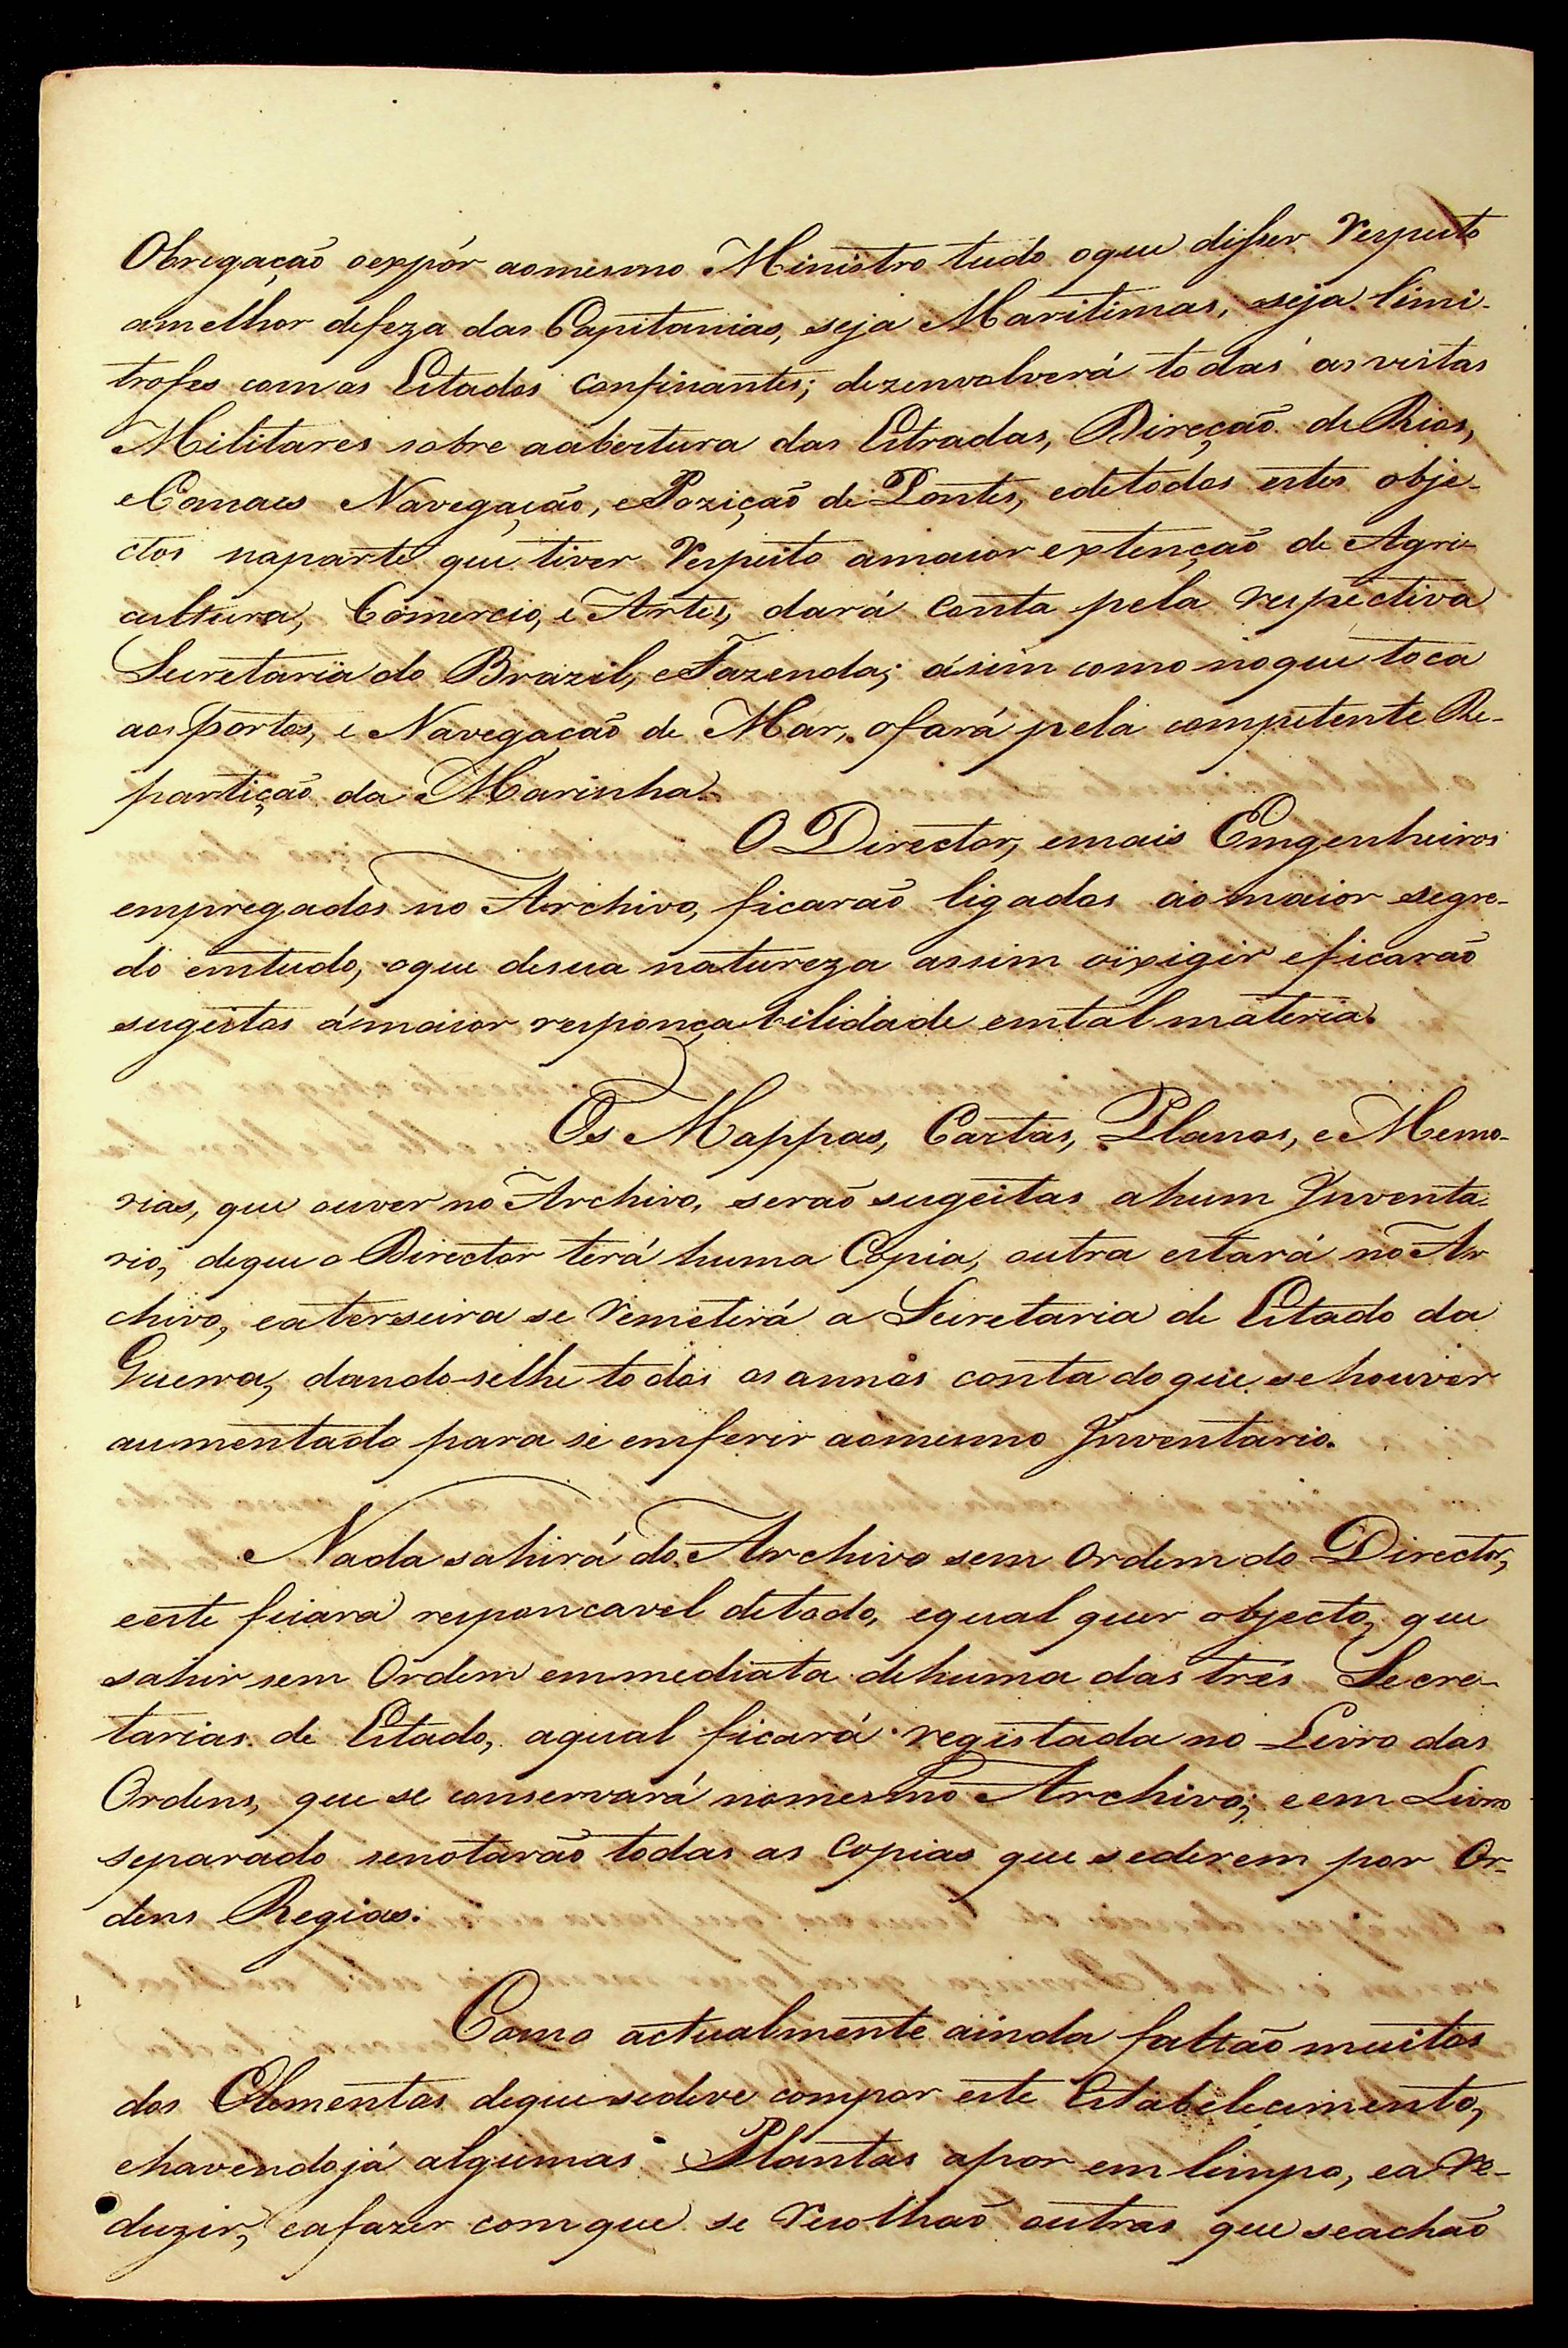 Obrigação oexpór aomesmo Ministro tudo oque disser Respeito
amelhor defeza das Capitanias, seja Maritimas, seja limi-
trofes com os Estados confinantes; dezenvolverá todas as vistas
Militares sobre aabertura das Estradas, Direção de Rios,
e Canaes Navegação, e Pozição de Pontes, edetodos estes obje-
ctos naparte que tiver Respeito amaior extenção de Agri-
cultura, Comercio, e Artes, dará Conta pela respectiva
Secretaria do Brazil, e Fazenda; ásim como noque toca
aos portos, e Navegação de Mar, ofará pela competente Re-
partição da Marinha.
O Director, emais Emgenheiros
empregados no Archivo, ficarão ligados ao maior segre-
do emtudo, oque desua natureza assim oixigir eficarão
sugeitos ámaior responçabilidade emtal materia.
Os Mappas, Cartas, Planos, e Memo-
rias, que ouver no Archivo, serão sugeitas ahum Inventa-
rio, deque o Director terá huma Copia, outra estará no Ar
chivo, eaterseira se Remeterá a Secretaria de Estado da
Guerra, dando-selhe todos os annos conta doque sehouver
aumentado para se emferir aomesmo Inventario.
Nada sahirá do Archivo sem Ordem do Director,
eeste ficara responcavel detodo, equal quer objecto, que
sahir sem Ordem emmediata dehuma das três Secre-
tarias de Estado, aqual ficará registada no Livro das
Ordens, que se conservará nomesmo Archivo; eem Livro
separado senotarão todas as Copias que sederem por Or-
dens Regias.
Como actualmente ainda faltão muitos
dos Elementos dequesedeve compor este Estabelecimento,
ehavendojá algumas Plantas apor em limpo, ea Re-
duzir, eafazer comque se Recolhão outras que seachão